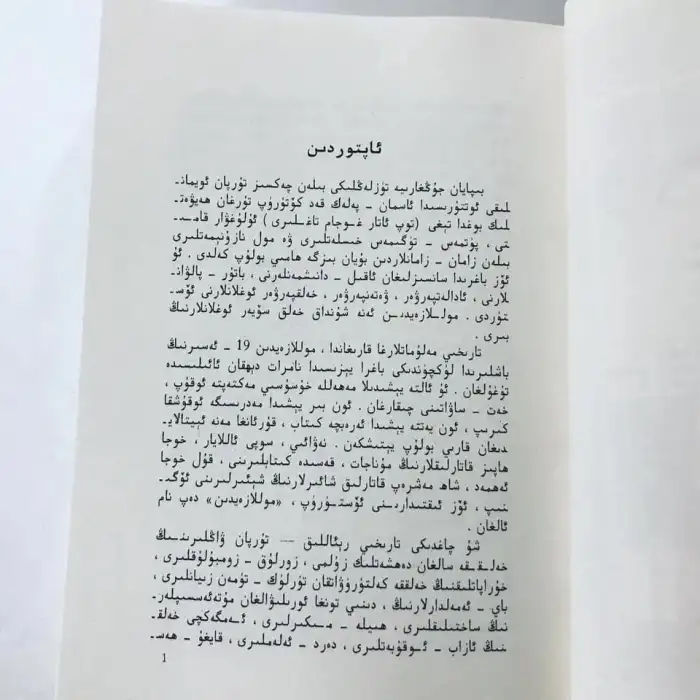 ئاپتوردىن
بىپايان جۇڭغارىيە تۈزلەڭلىكى بىلەن چەكسىز تۇرپان ئويمانـ
لىقى ئوتتۇرىسىدا ئاسمان - پەلەك قەد كۆتۈرۈپ تۇرغان ھەيۋەتـ
لىك بوغدا تېغى (توپ ئاتار غوجام تاغلىرى) ئۇلۇغۋار قامىـ
تى، پۈتمەس - تۈگىمەس خىسلەتلىرى ۋە مول نازۇنېمەتلىرى
بىلەن زامان - زامانلاردىن بۇيان بىزگە ھامىي بولۇپ كەلدى. ئۇ
ئۆز باغرىدا سانسىزلىغان ئاقىل - دانىشمەنلەرنى، باتۇر - پالۋانـ
لارنى، ئادالەتپەرۋەر، ۋەتەنپەرۋەر، خەلقپەرۋەر ئوغلانلارنى ئۆسـ
تۈردى. موللازەيدىن ئەنە شۇنداق خەلق سۆيەر ئوغلانلارنىڭ
بىرى.
تارىخىي مەلۇماتلارغا قارىغاندا، موللازەيدىن 19 - ئەسىرنىڭ
باشلىرىدا لۈكچۈندىكى باغرا يېزىسىدا نامرات دېھقان ئائىلىسىدە
تۇغۇلغان. ئۇ ئالتە يېشىدىلا مەھەللە خۇسۇسىي مەكتەپتە ئوقۇپ،
خەت - ساۋاتىنى چىقارغان. ئون بىر يېشىدا مەدرىسىگە ئوقۇشقا
كىرىپ، ئون يەتتە يېشىدا ئەرەبچە كىتاب، قۇرئانغا مەنە ئېيتالايـ
دىغان قارىي بولۇپ يېتىشكەن. نەۋائىي، سوپى ئاللايار، خوجا
ھاپىز قاتارلىقلارنىڭ مۇناجات، قەسىدە كىتابلىرىنى، قۇل خوجا
ئەھمەد، شاھ مەشرەپ قاتارلىق شائىرلارنىڭ شېئىرلىرىنى ئۆگـ
نىپ، ئۆز ئىقتىدارىنى ئۆستۈرۈپ، «موللازەيدىن» دەپ نام
ئالغان.
شۇ چاغدىكى تارىخىي رېئاللىق — تۇرپان ۋاڭلىرىنىڭ
خەلىقىقە سالغان دەھشەتلىك زۇلمى، زورلۇق - زومبۇلۇقلىرى،
خۇراپاتلىقنىڭ خەلققە كەلتۈرۈۋاتقان تۈرلۈك - تۈمەن زىيانلىرى،
باي - ئەمەلدارلارنىڭ، دىنىي تونغا ئورىلىۋالغان مۇتەئەسسىپلەرـ
نىڭ ساختىلىقلىرى، ھىيلە - مىكىرلىرى، ئەمگەكچى خەلقـ
نىڭ ئازاب - ئوقۇبەتلىرى، دەرد - ئەلەملىرى، قايغۇ - ھەسـ
1